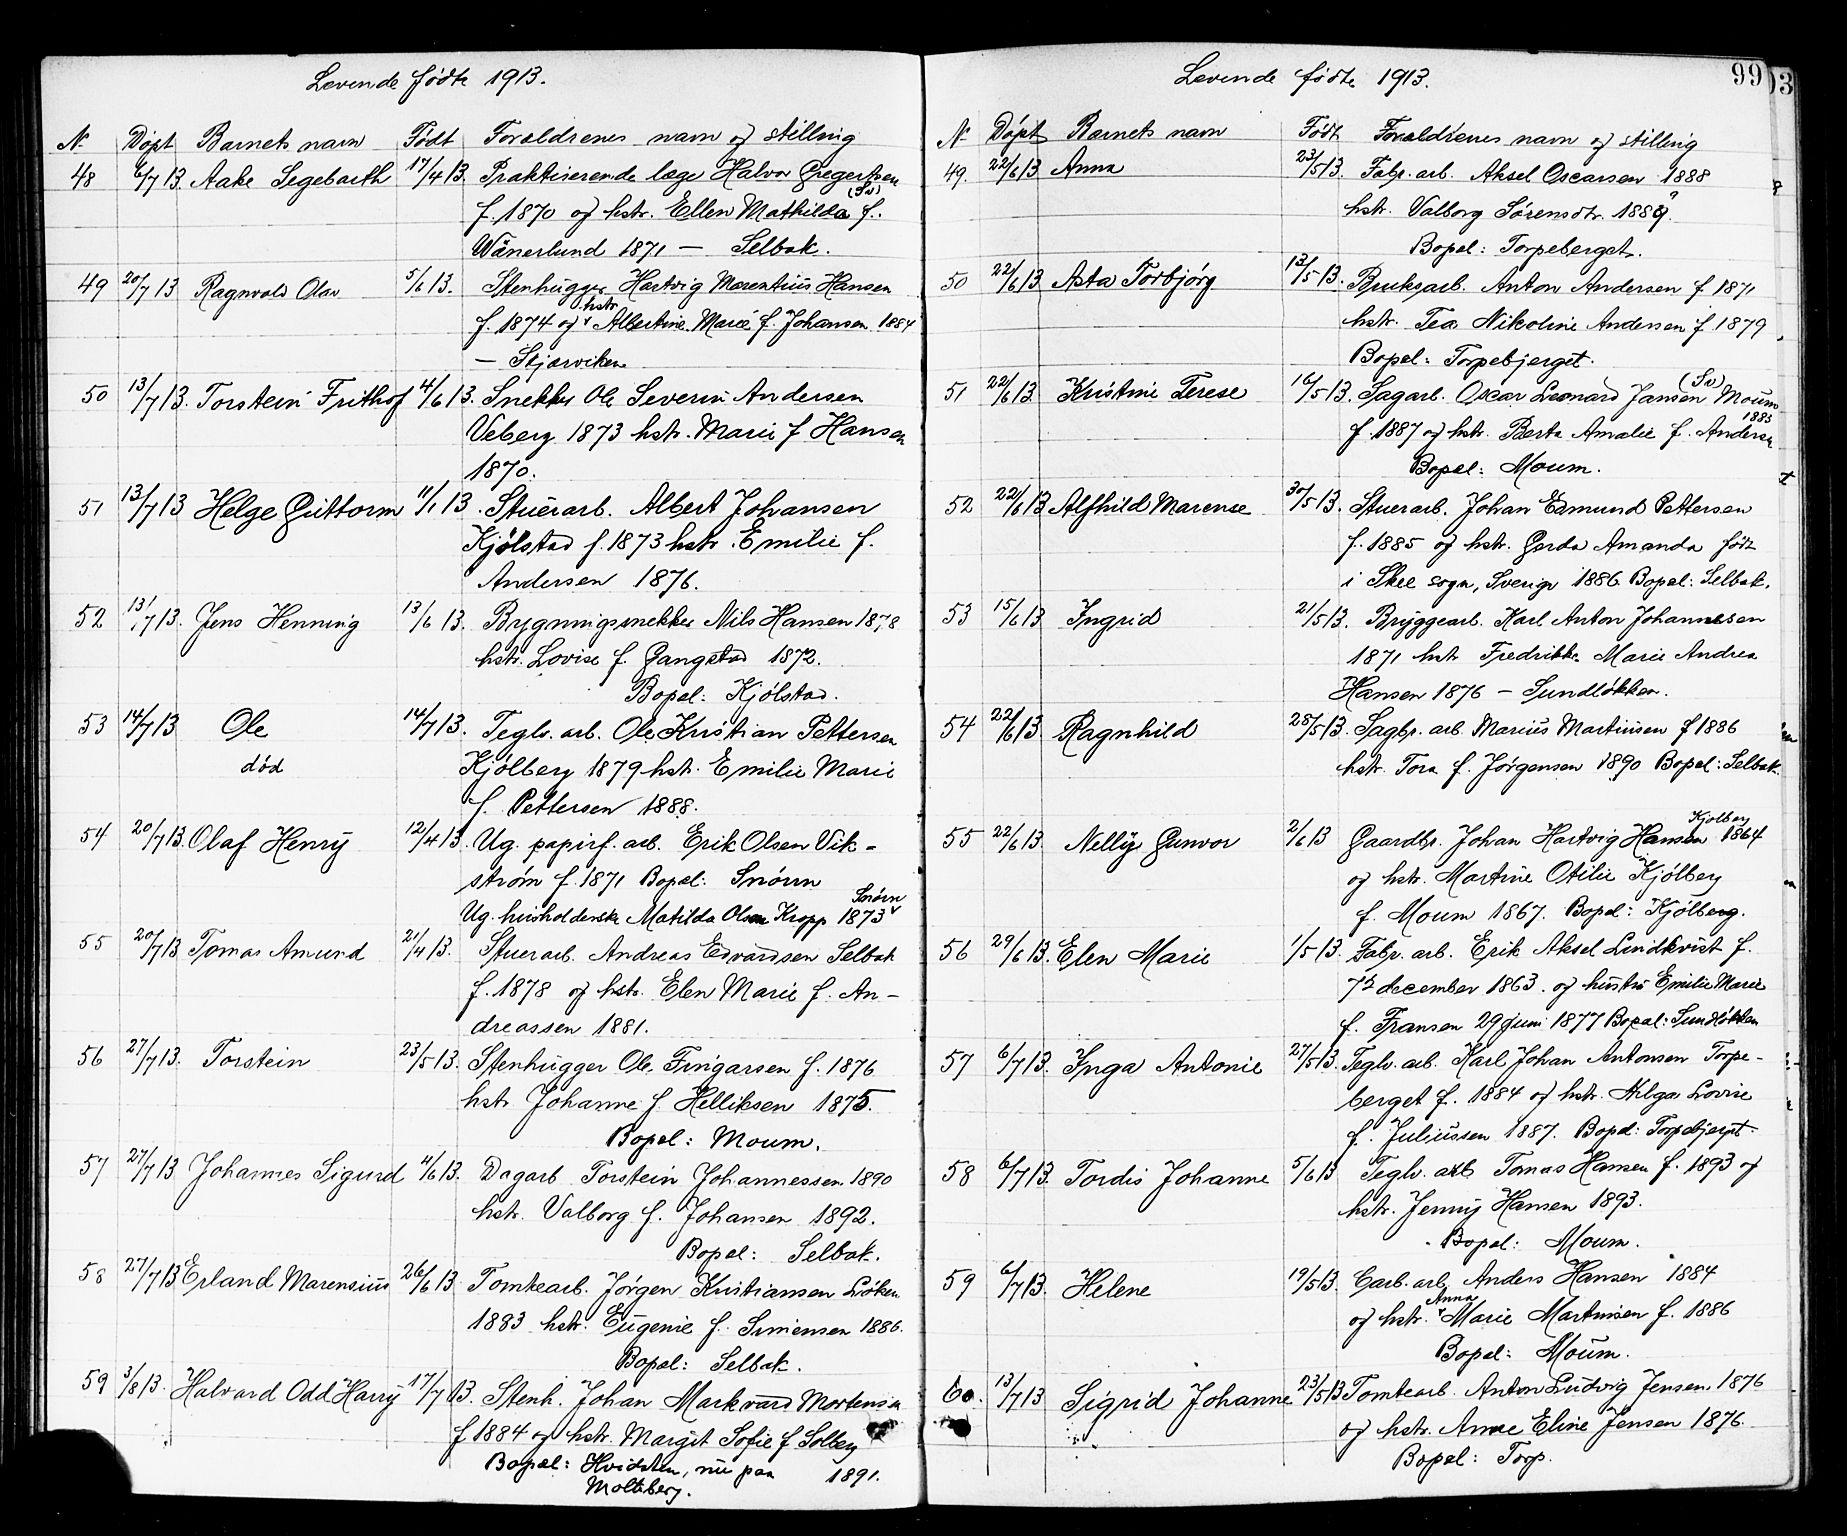 Levende fødte 1913.
N. Døpt Barnets navn Født Forældrenes navn og stilling
48 6/7 13. Aake Segebarth 17/4 13. Praktiserende læge Halvor Gregertsen
f. 1870 og hstr. Ellen Mathilda (Sv) f.
Wänerlund 1871 — Selbak.
49 20/7 13 Ragnvald Olav 5/6 13. Stenhugger Hartvig Marentius Hansen
f. 1874 og hstr Albertine Marie f. Johansen 1884
— Skjærviken
50 13/7 13. Torstein Frithof 4/6 13. Snekker Ole Severin Andersen
Veberg 1873 hstr. Marie f Hansen
1870.
51 13/7 13 Helge Guttorm 11/1 13. Stuerarb. Albert Johansen
Kjölstad f. 1873 hstr. Emilie f.
Andersen 1876.
52 13/7 13. Jens Henning 13/6 13. Bygningssnekker Nils Hansen 1878
hstr. Lovise f. Gangstad 1872.
Bopæl: Kjölstad.
53 14/7 13 Ole 14/7 13. Teglv. arb. Ole Kristian Pettersen
død Kjölberg 1879 hstr. Emilie Marie
f. Pettersen 1888.
54 20/7 13. Olaf Henry 12/4 13. Ug. papirf. arb. Erik Olsen Vik-
ström f. 1871 Bopæl: Snörm
Ug. husholderske Matilda Olsen Kropp 1873 Snörm
55 20/7 13 Tomas Amund 21/4 13. Stuerarb. Andreas Edvardsen Selbak
f. 1878 og hstr. Elen Marie f. An-
dreassen 1881.
56 27/7 13. Torstein 23/5 13. Stenhugger Ole Fingarsen f. 1876
hstr Johanne f. Helliksen 1875.
Bopæl: Moum.
57 27/7 13 Johannes Sigurd 4/6 13. Dagarb Torstein Johannessen 1890
hstr. Valborg f. Johansen 1892.
Bopæl: Selbak.
58 27/7 13 Erland Marensius 26/6 13 Tomtearb. Jörgen Kristiansen Löken
1883 hstr. Eugenie f. Simensen 1886.
Bopæl: Selbak.
59 3/8 13. Halvard Odd Harry 17/7 13. Stenh. Johan Markvard Mortensen
f 1884 og hstr. Margit Sofie f Solberg
Bopæl: Hvidsten, nu paa 1891.
Molteberg.
Levende fødte 1913.
99
N. Døpt Barnets navn Født Forældrenes navn og stilling
49. 22/6 13 Anna 23/5 13. Fabr. arb. Aksel Oscarsen 1888
hstr. Valborg Sørensdtr. 1889.
Bopæl: Torpeberget.
50 22/6 13 Asta Torbjörg 13/5 13. Bruksarb. Anton Andersen f 1871
hstr. Tea Nikoline Andersen f 1879
Bopæl: Torpebjerget.
51 22/6 13 Kristine Terese 16/5 13. Sagarb. Oscar Leonard Jansen (Sv) Moum
f. 1887 og hstr. Berta Amalie f. Andersen 1883
Bopæl: Moum.
52 22/6 13 Alfhild Marense 30/5 13. Stuerarb. Johan Edmund Pettersen
f. 1885 og hstr. Gerda Amanda født
i Skee sogn, Sverige 1886 Bopæl: Selbak.
53 15/6 13 Ingrid 21/5 13. Bryggearb. Karl Anton Johannessen
1871 hstr Fredrikke Marie Andrea
Hansen 1876 — Sundløkken.
54 22/6 13 Ragnhild 28/5 13. Sagbr. arb. Marius Martinsen f 1886
hstr. Tora f. Jörgensen 1890 Bopæl: Selbak.
55 22/6 13. Nelly Gunvor 2/6 13 Gaardbr. Johan Hartvig Hansen Kjölberg 1864
og hstr. Martine Otilie Kjölberg
f. Moum 1867. Bopæl: Kjölberg.
56 29/6 13. Elen Marie 1/5 13. Fabr. arb. Erik Aksel Lindkvist f.
7de december 1863. og hustru Emilie Marie
f. Fransen 29 juni 1877 Bopæl: Sundløkken
57 6/7 13. Inga Antonie 27/5 13. Teglv. arb. Karl Johan Antonsen Torpe-
berget f. 1884 og hstr. Helga Lovise
f. Juliussen 1887. Bopæl: Torpebjerget.
58 6/7 13. Tordis Johanne 5/6 13 Teglv. arb Tomas Hansen f. 1893 og
hstr. Jenny Hansen 1893.
Bopæl: Moum.
59 6/7 13. Helene 19/5 13. Carb. arb. Anders Hansen 1884
og hstr. Anna Marie Martinsen f. 1886
Bopæl: Moum.
60. 13/7 13 Sigrid Johanne 23/5 13 Tomtearb. Anton Ludvig Jensen 1876
og hstr. Anne Eline Jensen 1876.
Bopæl: Torp.